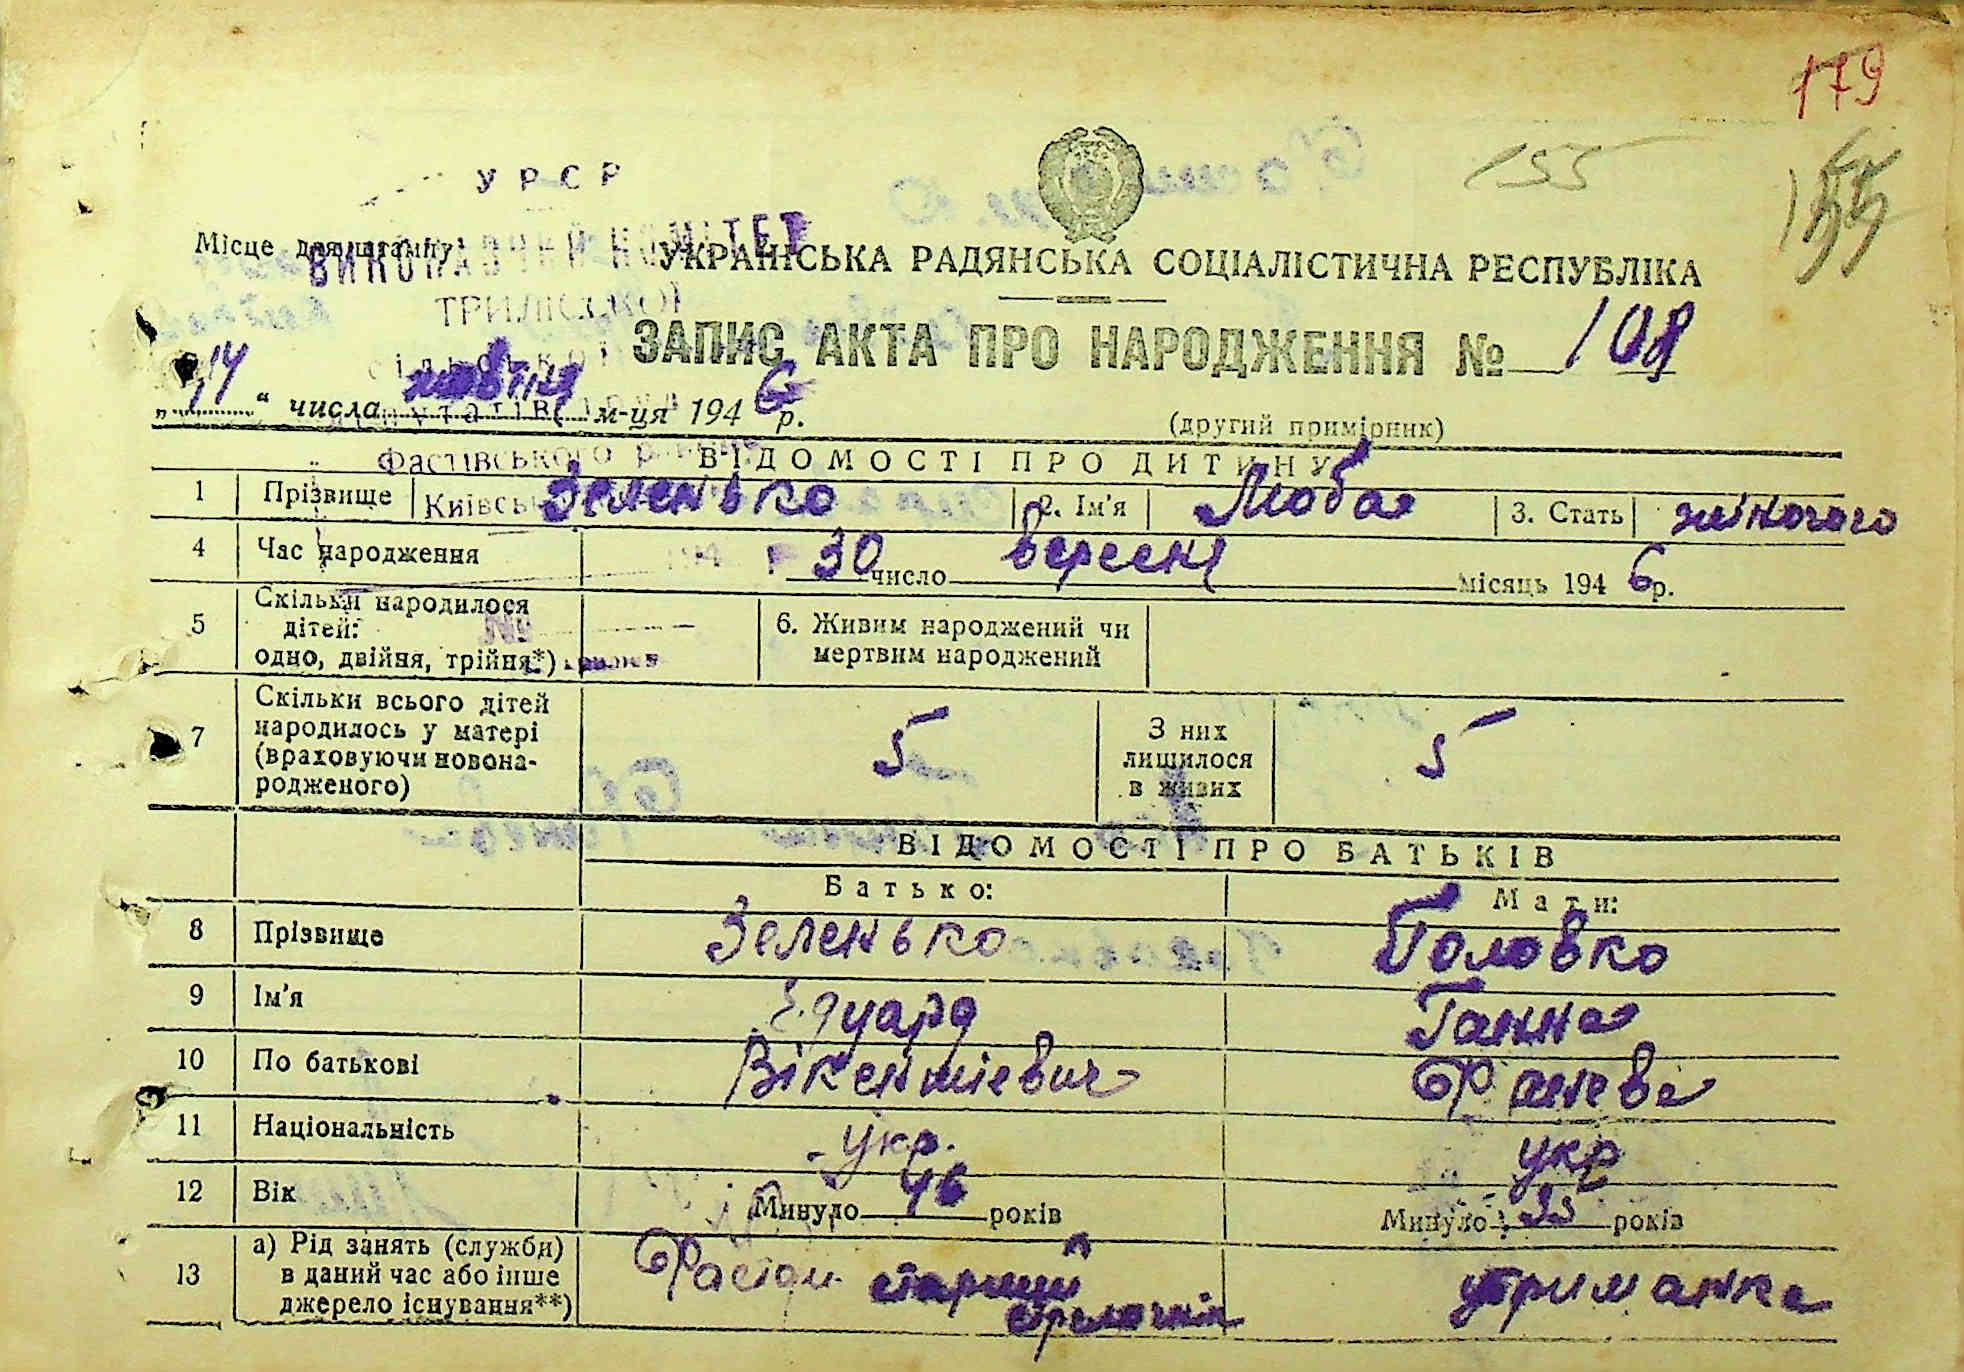 179
155
155
УРСР
ВИКОНАВЧИЙ КОМІТЕТ
Місце для штампу
УКРАЇНСЬКА РАДЯНСЬКА СОЦІАЛІСТИЧНА РЕСПУБЛІКА
ТРИЛІССКОЇ
ЗАПИС АКТА ПРО НАРОДЖЕННЯ № 108
„14“ числа жовтня м-ця 1946 р.
(другий примірник)
Фастівського
ВІДОМОСТІ ПРО ДИТИНУ
1 Прізвище Зеленько 2. Ім'я Люба 3. Стать жіночого
4 Час народження 30 число вересня місяць 1946 р.
5 Скільки народилося дітей: одно, двійня, трійня*)
6. Живим народжений чи мертвим народжений
7 Скільки всього дітей народилось у матері (враховуючи новонародженого) 5 З них лишилося в живих 5
ВІДОМОСТІ ПРО БАТЬКІВ
Батько: Мати:
8 Прізвище Зеленько Головко
9 Ім'я Едуард Ганна
10 По батькові Вікентієвич
11 Національність укр. укр
12 Вік Минуло 46 років Минуло 35 років
13 а) Рід занять (служби) в даний час або інше джерело існування**) Фастов старший стрелочнік утриманка